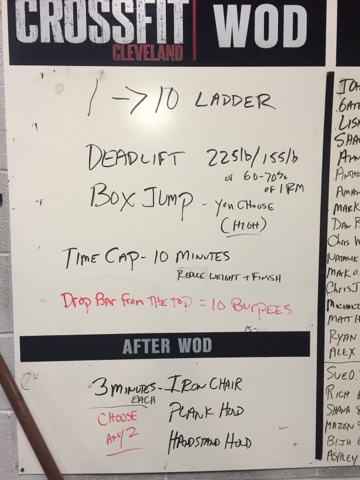 CROSSFIT
CLEVELAND
WOD
1 -> 10 LADDER
DEADLIFT 225lb/155lb
or 60-70%
OF 1RM
BOX JUMP - YOU CHOOSE
(HIGH)
TIME CAP - 10 MINUTES
REDUCE WEIGHT + FINISH
DROP BAR FROM THE TOP = 10 BURPEES
AFTER WOD
3 MINUTES - IRON CHAIR
EACH
CHOOSE
ANY 2
PLANK HOLD
HANDSTAND HOLD
MARK
CHRIS W
NATALIE
MARK D.
CHRIS J
MATT H
RYAN
ALEX
SUE D.
RICH
SHANA
MAZEN
BIJU
ASHLEY